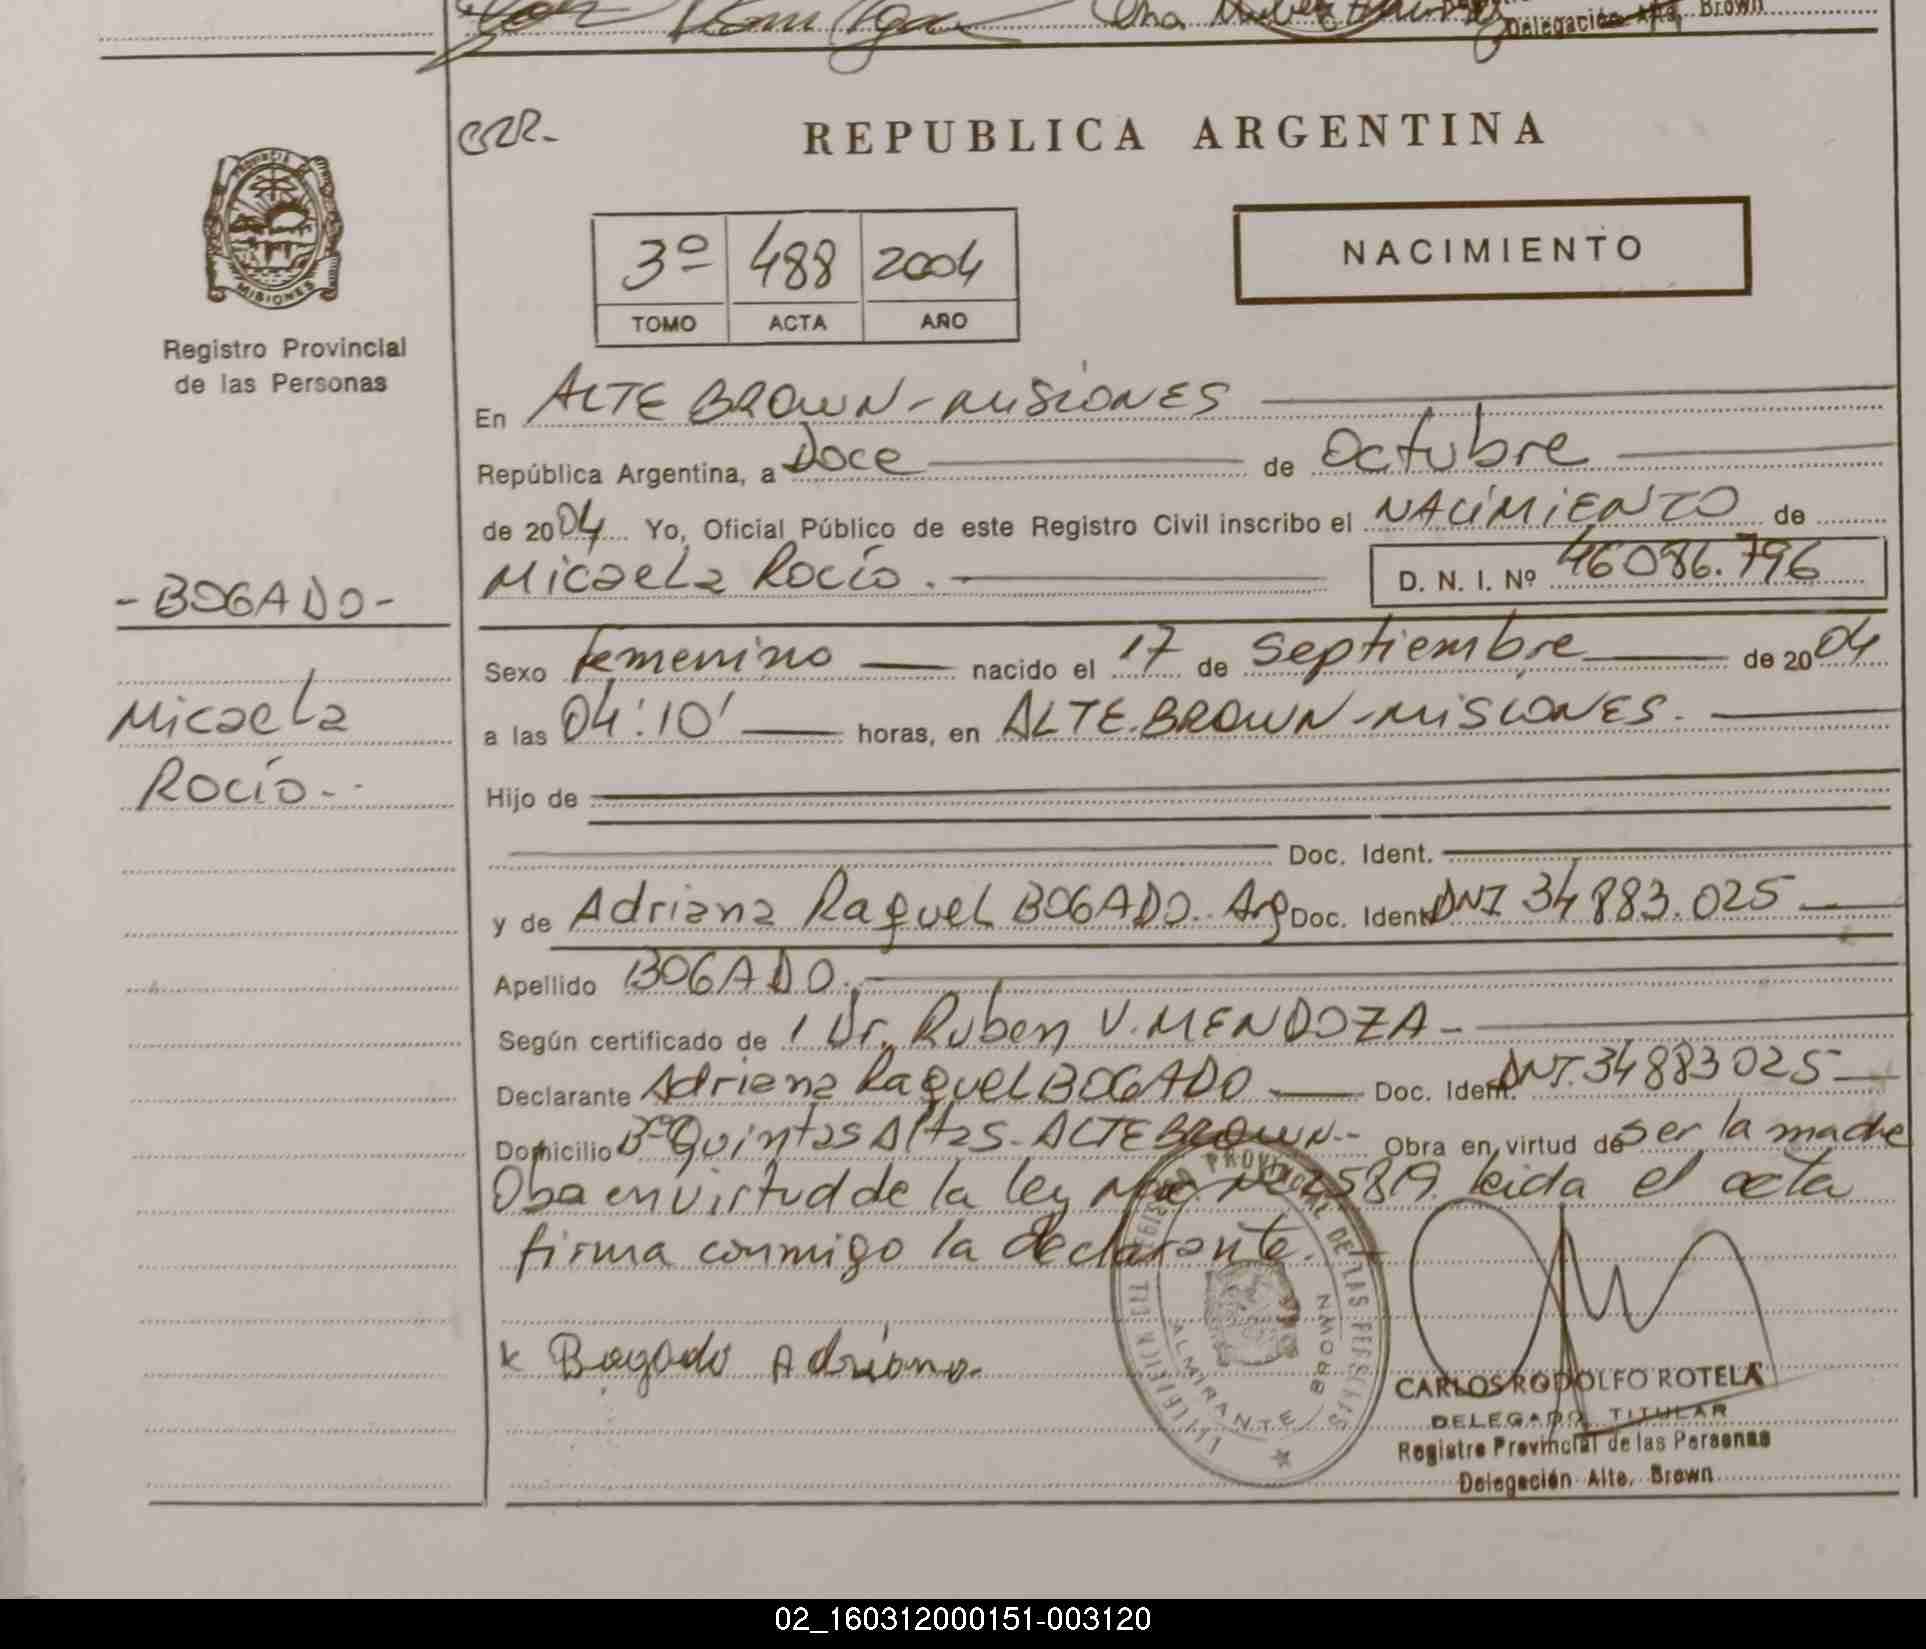 Delegación Alte. Brown
CRR.-
REPUBLICA ARGENTINA
PROVINCIA DE
MISIONES
Registro Provincial
de las Personas
3º 488 2004
TOMO ACTA AÑO
NACIMIENTO
En ALTE BROWN-MISIONES
República Argentina, a Doce de Octubre
de 2004 Yo, Oficial Público de este Registro Civil inscribo el NACIMIENTO de
Micaela Rocío. D. N. I. Nº 46086.796
-BOGADO-
Micaela
Rocío.-
Sexo femenino nacido el 17 de septiembre de 2004
a las 04:10' horas, en ALTE.BROWN-MISIONES.
Hijo de
Doc. Ident.
y de Adriana Raquel BOGADO. Arg Doc. Ident. DNI 34883.025
Apellido BOGADO.
Según certificado de Dr. Ruben V. MENDOZA-
Declarante Adriana Raquel BOGADO Doc. Ident. DNI. 34883025
Domicilio Bº Quintas Altas-ALTE BROWN.- Obra en virtud de ser la madre
Oba en virtud de la ley leida el acta
firma conmigo la declarante.
Bogado Adriana.
PROVINCIAL DE LAS PERSONAS
ALMIRANTE BROWN
CARLOS RODOLFO ROTELA
DELEGADO TITULAR
Registro Provincial de las Personas
Delegación Alte. Brown
02_160312000151-003120